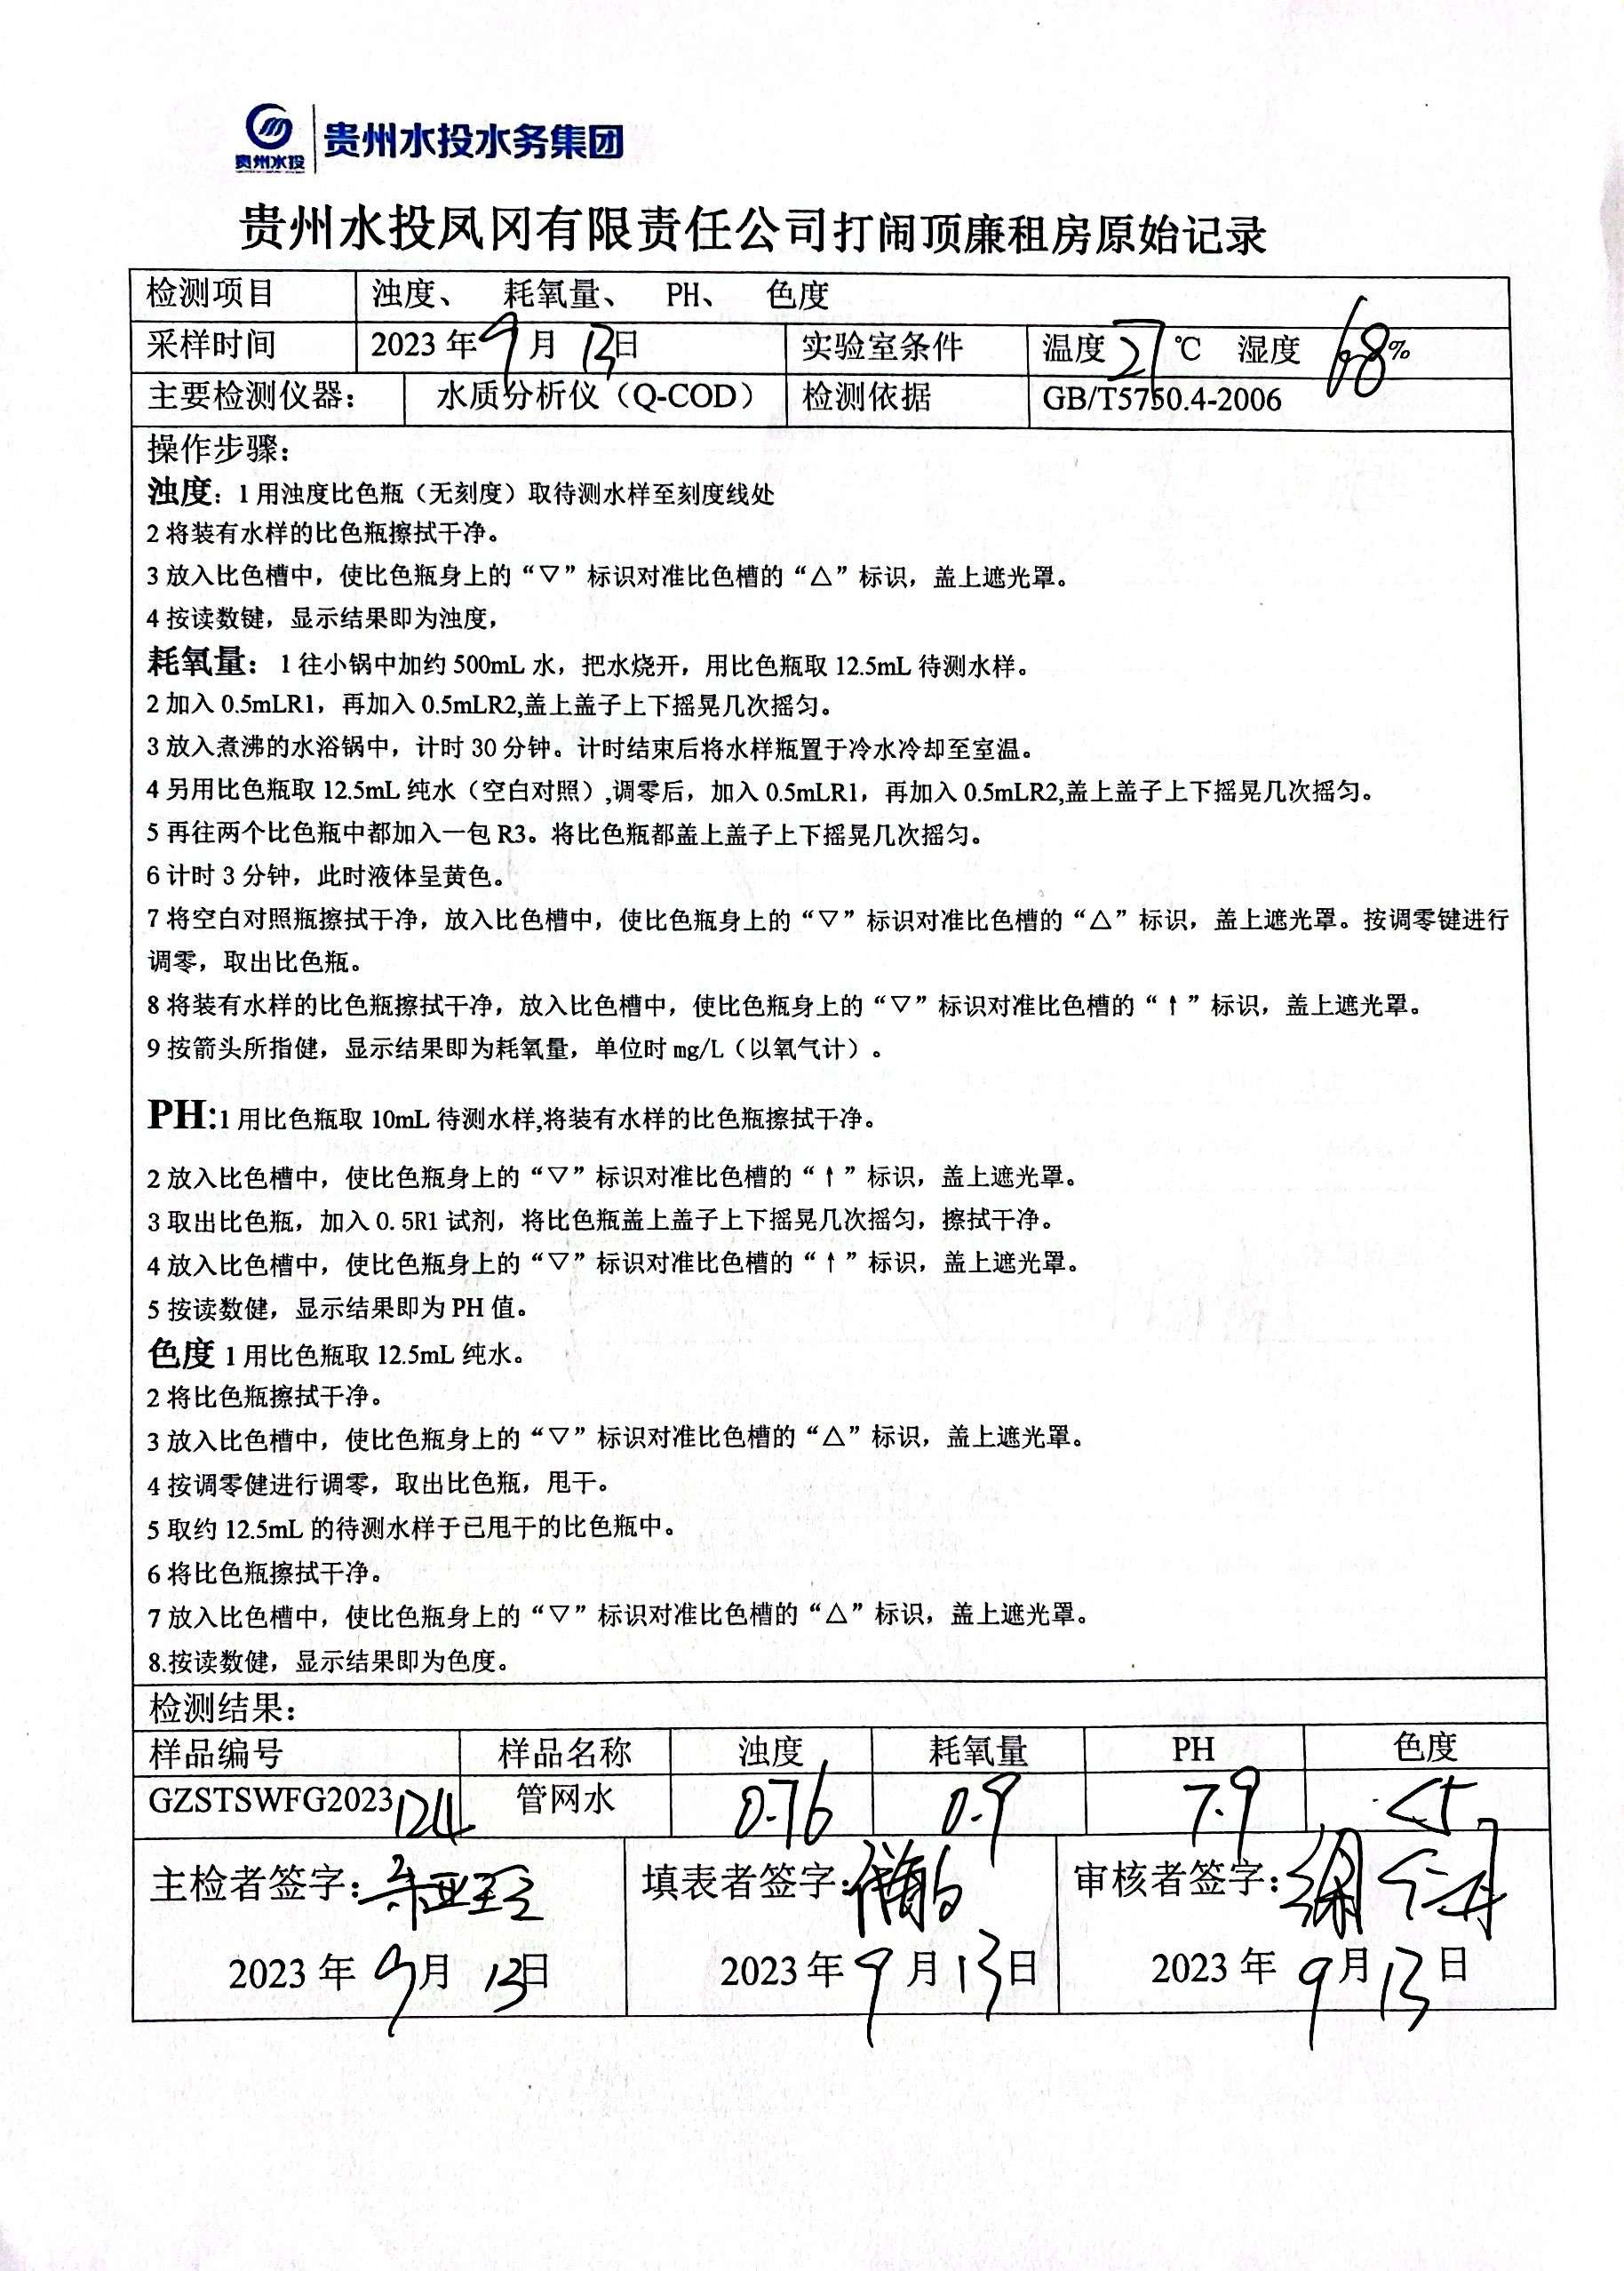 贵州水投 贵州水投水务集团
贵州水投凤冈有限责任公司打闹顶廉租房原始记录
检测项目 浊度、 耗氧量、 PH、 色度
采样时间 2023 年 9 月 13 日 实验室条件 温度 21 ℃ 湿度 68 %
主要检测仪器: 水质分析仪（Q-COD） 检测依据 GB/T5750.4-2006
操作步骤:
浊度: 1 用浊度比色瓶（无刻度）取待测水样至刻度线处
2 将装有水样的比色瓶擦拭干净。
3 放入比色槽中，使比色瓶身上的“▽”标识对准比色槽的“△”标识，盖上遮光罩。
4 按读数键，显示结果即为浊度，
耗氧量: 1 往小锅中加约 500mL 水，把水烧开，用比色瓶取 12.5mL 待测水样。
2 加入 0.5mLR1，再加入 0.5mLR2,盖上盖子上下摇晃几次摇匀。
3 放入煮沸的水浴锅中，计时 30 分钟。计时结束后将水样瓶置于冷水冷却至室温。
4 另用比色瓶取 12.5mL 纯水（空白对照）,调零后，加入 0.5mLR1，再加入 0.5mLR2,盖上盖子上下摇晃几次摇匀。
5 再往两个比色瓶中都加入一包 R3。将比色瓶都盖上盖子上下摇晃几次摇匀。
6 计时 3 分钟，此时液体呈黄色。
7 将空白对照瓶擦拭干净，放入比色槽中，使比色瓶身上的“▽”标识对准比色槽的“△”标识，盖上遮光罩。按调零键进行
调零，取出比色瓶。
8 将装有水样的比色瓶擦拭干净，放入比色槽中，使比色瓶身上的“▽”标识对准比色槽的“↑”标识，盖上遮光罩。
9 按箭头所指健，显示结果即为耗氧量，单位时 mg/L（以氧气计）。
PH:1 用比色瓶取 10mL 待测水样,将装有水样的比色瓶擦拭干净。
2 放入比色槽中，使比色瓶身上的“▽”标识对准比色槽的“↑”标识，盖上遮光罩。
3 取出比色瓶，加入 0.5R1 试剂，将比色瓶盖上盖子上下摇晃几次摇匀，擦拭干净。
4 放入比色槽中，使比色瓶身上的“▽”标识对准比色槽的“↑”标识，盖上遮光罩。
5 按读数健，显示结果即为 PH 值。
色度 1 用比色瓶取 12.5mL 纯水。
2 将比色瓶擦拭干净。
3 放入比色槽中，使比色瓶身上的“▽”标识对准比色槽的“△”标识，盖上遮光罩。
4 按调零健进行调零，取出比色瓶，甩干。
5 取约 12.5mL 的待测水样于已甩干的比色瓶中。
6 将比色瓶擦拭干净。
7 放入比色槽中，使比色瓶身上的“▽”标识对准比色槽的“△”标识，盖上遮光罩。
8.按读数健，显示结果即为色度。
检测结果:
样品编号 样品名称 浊度 耗氧量 PH 色度
GZSTSWFG2023124 管网水 0.76 0.9 7.9 <5
主检者签字: 填表者签字: 审核者签字:
2023 年 9 月 13 日 2023 年 9 月 13 日 2023 年 9 月 13 日